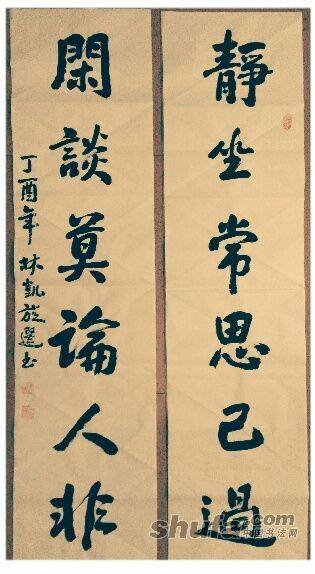 靜坐常思己過
閑談莫論人非
丁酉年 林凱旋 書
shufa.com
中国书法网